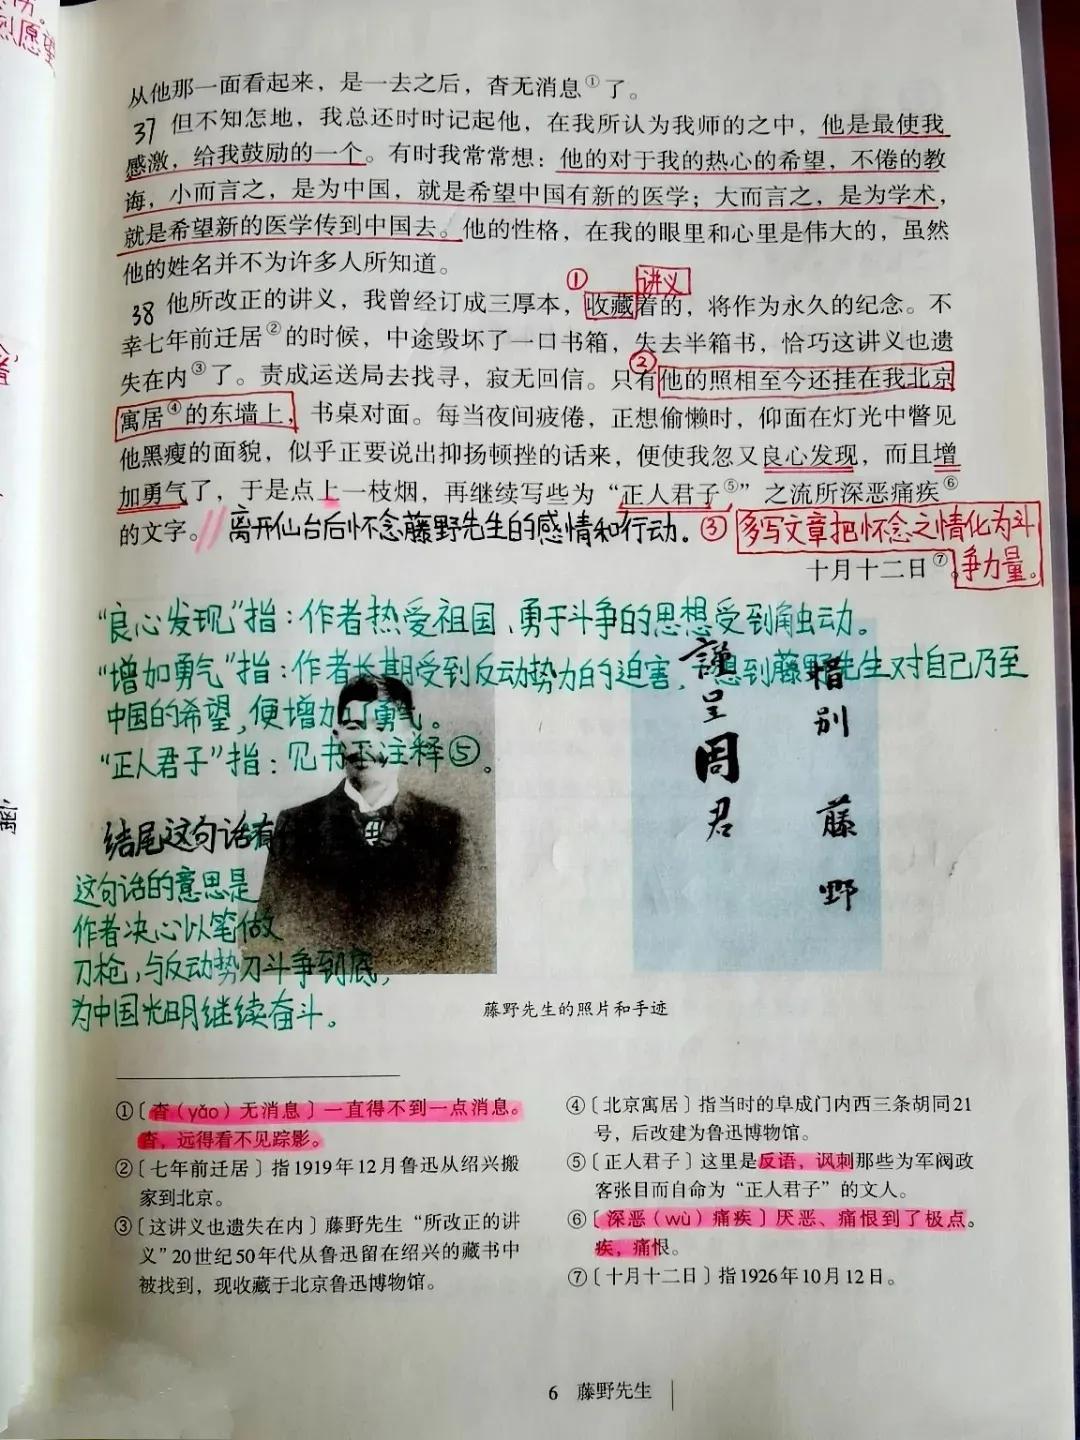 伤。
烈愿望
从他那一面看起来，是一去之后，杳无消息①了。
37 但不知怎地，我总还时时记起他，在我所认为我师的之中，他是最使我
感激，给我鼓励的一个。有时我常常想：他的对于我的热心的希望，不倦的教
诲，小而言之，是为中国，就是希望中国有新的医学；大而言之，是为学术，
就是希望新的医学传到中国去。他的性格，在我的眼里和心里是伟大的，虽然
他的姓名并不为许多人所知道。
① 讲义
38 他所改正的讲义，我曾经订成三厚本，收藏着的，将作为永久的纪念。不
幸七年前迁居②的时候，中途毁坏了一口书箱，失去半箱书，恰巧这讲义也遗
②
失在内③了。责成运送局去找寻，寂无回信。只有他的照相至今还挂在我北京
寓居④的东墙上，书桌对面。每当夜间疲倦，正想偷懒时，仰面在灯光中瞥见
他黑瘦的面貌，似乎正要说出抑扬顿挫的话来，便使我忽又良心发现，而且增
加勇气了，于是点上一枝烟，再继续写些为“正人君子⑤”之流所深恶痛疾⑥
的文字。// 离开仙台后怀念藤野先生的感情和行动。③ 多写文章把怀念之情化为斗
争力量。
十月十二日⑦
“良心发现”指：作者热爱祖国、勇于斗争的思想受到触动。
“增加勇气”指：作者长期受到反动势力的迫害，想到藤野先生对自己乃至
中国的希望，便增加了勇气。
“正人君子”指：见书下注释⑤。
结尾这句话有
这句话的意思是
作者决心以笔做
刀枪，与反动势力斗争到底，
为中国光明继续奋斗。
惜别
藤野
謹呈周君
离
藤野先生的照片和手迹
①〔杳（yǎo）无消息〕一直得不到一点消息。
杳，远得看不见踪影。
②〔七年前迁居〕指1919年12月鲁迅从绍兴搬
家到北京。
③〔这讲义也遗失在内〕藤野先生“所改正的讲
义”20世纪50年代从鲁迅留在绍兴的藏书中
被找到，现收藏于北京鲁迅博物馆。
④〔北京寓居〕指当时的阜成门内西三条胡同21
号，后改建为鲁迅博物馆。
⑤〔正人君子〕这里是反语，讽刺那些为军阀政
客张目而自命为“正人君子”的文人。
⑥〔深恶（wù）痛疾〕厌恶、痛恨到了极点。
疾，痛恨。
⑦〔十月十二日〕指1926年10月12日。
6 藤野先生